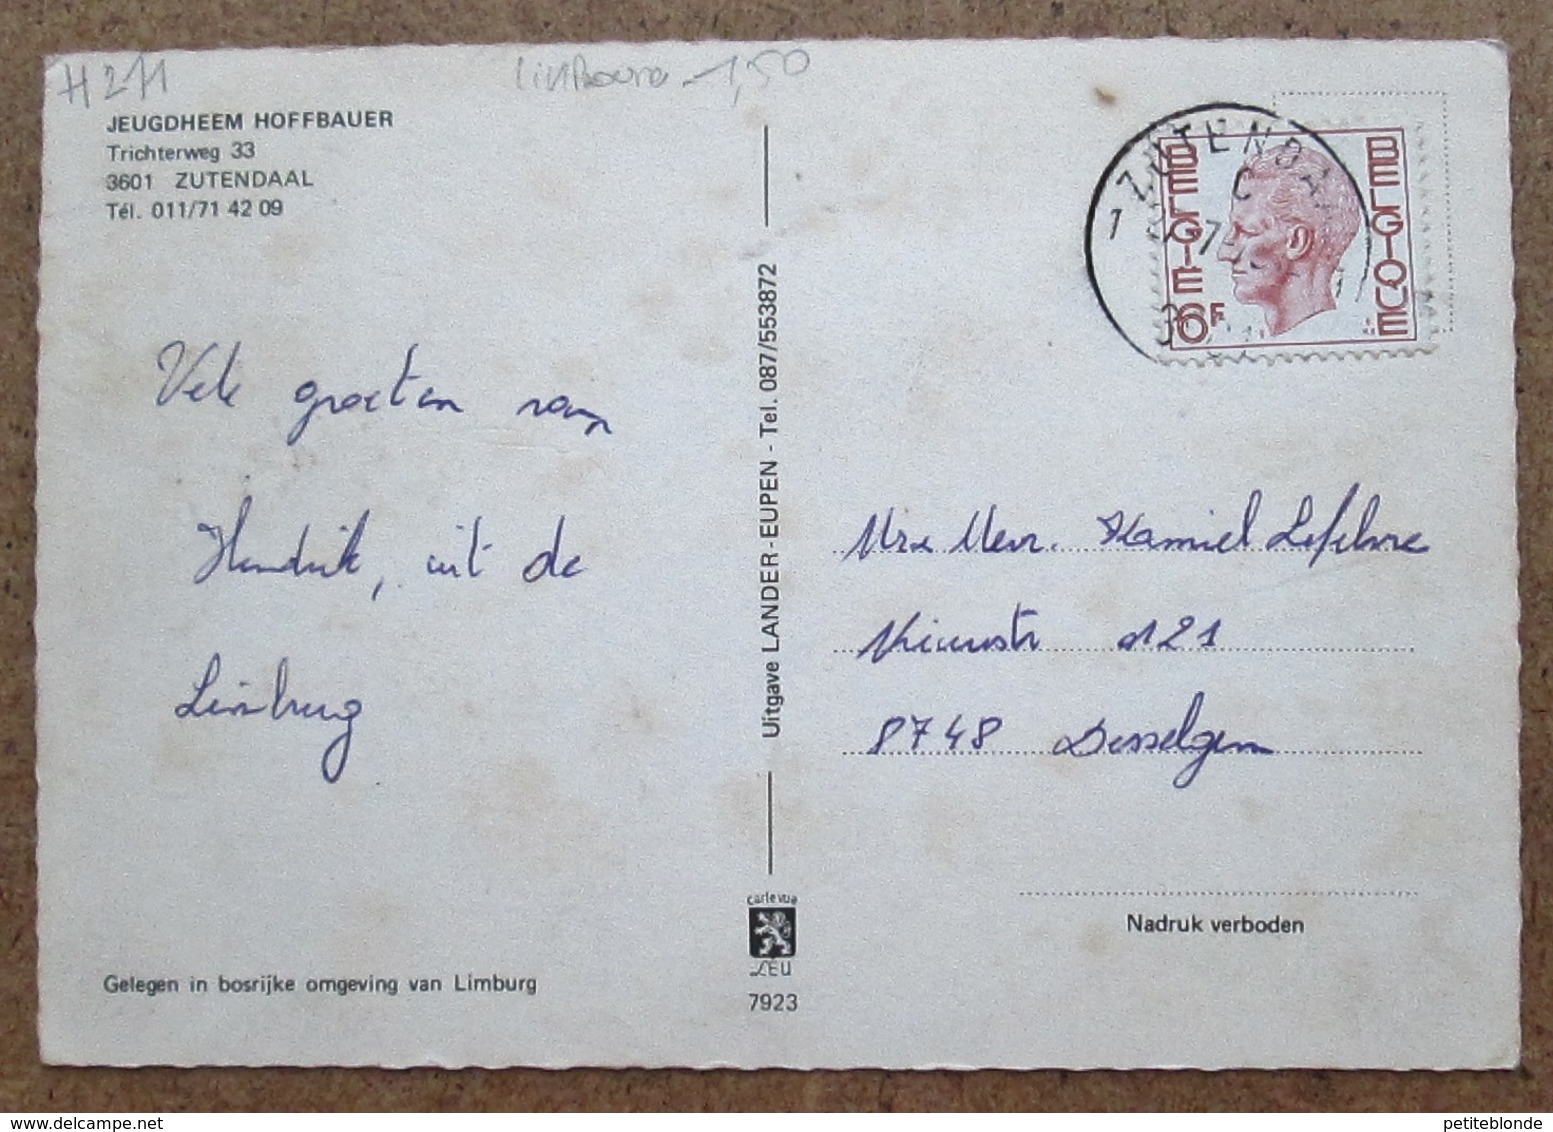 H211
Limbourg - 1,50
JEUGDHEEM HOFFBAUER
Trichterweg 33
3601 ZUTENDAAL
Tél. 011/71 42 09
Vele groeten van
Hendrik, uit de
Limburg
Gelegen in bosrijke omgeving van Limburg
Uitgave LANDER-EUPEN - Tel. 087/553872
carte vue
LEU
7923
ZUTENDA
C
BELGIE
BELGIQUE
6F
Mr & Mevr. Kamiel Lefebvre
Nieuwstr 121
8748 Desselgem
Nadruk verboden
petiteblonde